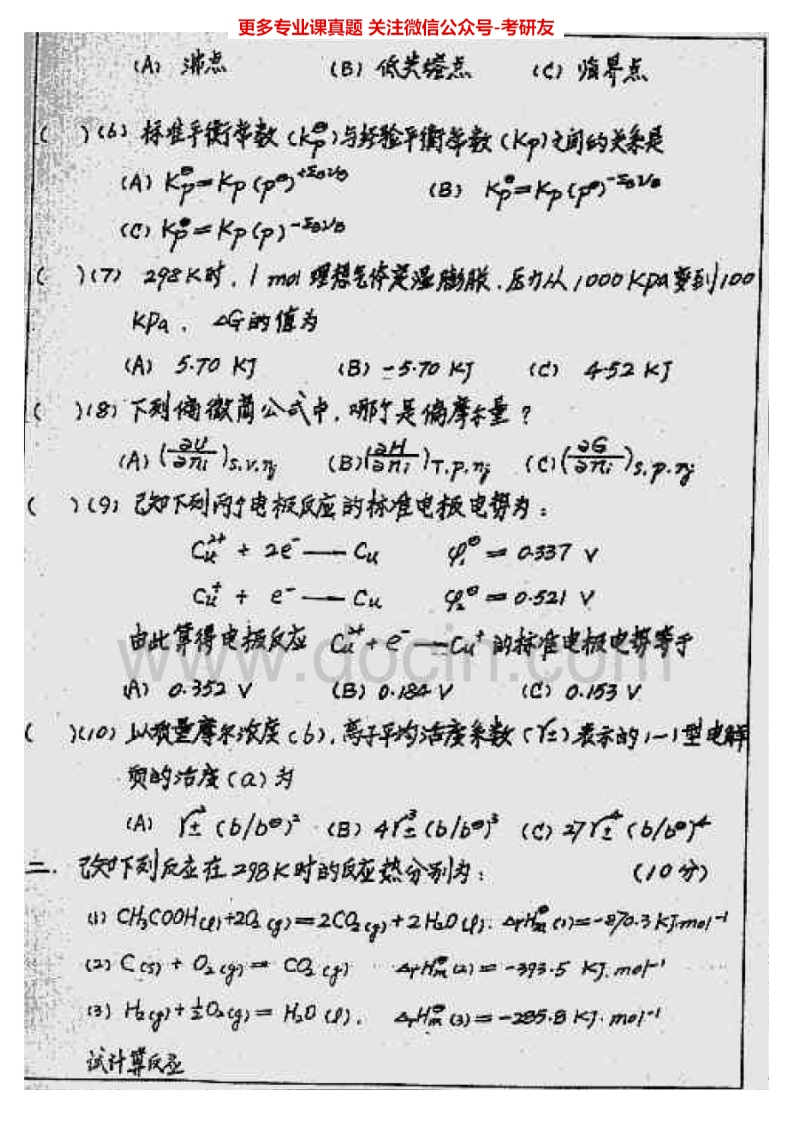 更多专业课真题 关注微信公众号-考研友
(A) 沸点 (B) 低共熔点 (C) 临界点
( )(6) 标准平衡常数(K_p^⊖)与经验平衡常数(Kp)之间的关系是
(A) K_p^⊖=Kp(p^⊖)^{+Σ_Bν_B} (B) K_p^⊖=Kp(p^⊖)^{-Σ_Bν_B}
(C) K_p^⊖=Kp(p)^{-Σ_Bν_B}
( )(7) 298K时,1 mol 理想气体定温膨胀,压力从1000 KPa变到100
KPa,ΔG的值为
(A) 5.70 KJ (B) -5.70 KJ (C) 4.52 KJ
( )(8) 下列偏微商公式中,哪个是偏摩尔量?
(A) (∂U/∂n_i)_{S,V,n_j} (B) (∂H/∂n_i)_{T,P,n_j} (C) (∂G/∂n_i)_{S,P,n_j}
( )(9) 已知下列两个电极反应的标准电极电势为:
Cu²⁺ + 2e⁻ — Cu φ₁^⊖ = 0.337 V
Cu⁺ + e⁻ — Cu φ₂^⊖ = 0.521 V
由此算得电极反应 Cu²⁺+e⁻—Cu⁺的标准电极电势等于
(A) 0.352 V (B) 0.184 V (C) 0.153 V
( )(10) 以质量摩尔浓度(b),离子平均活度系数(γ±)表示的1-1型电解
质的活度(a)为
(A) γ±²(b/b^⊖)² (B) 4γ±³(b/b^⊖)³ (C) 27γ±⁴(b/b^⊖)⁴
二. 已知下列反应在298K时的反应热分别为: (10分)
(1) CH₃COOH(l)+2O₂(g)=2CO₂(g)+2H₂O(l). ΔrH_m^⊖(1)=-870.3 KJ·mol⁻¹
(2) C(s) + O₂(g) = CO₂(g) ΔrH_m^⊖(2)=-393.5 KJ·mol⁻¹
(3) H₂(g)+½O₂(g) = H₂O(l). ΔrH_m^⊖(3)=-285.8 KJ·mol⁻¹
试计算反应
www.docin.com